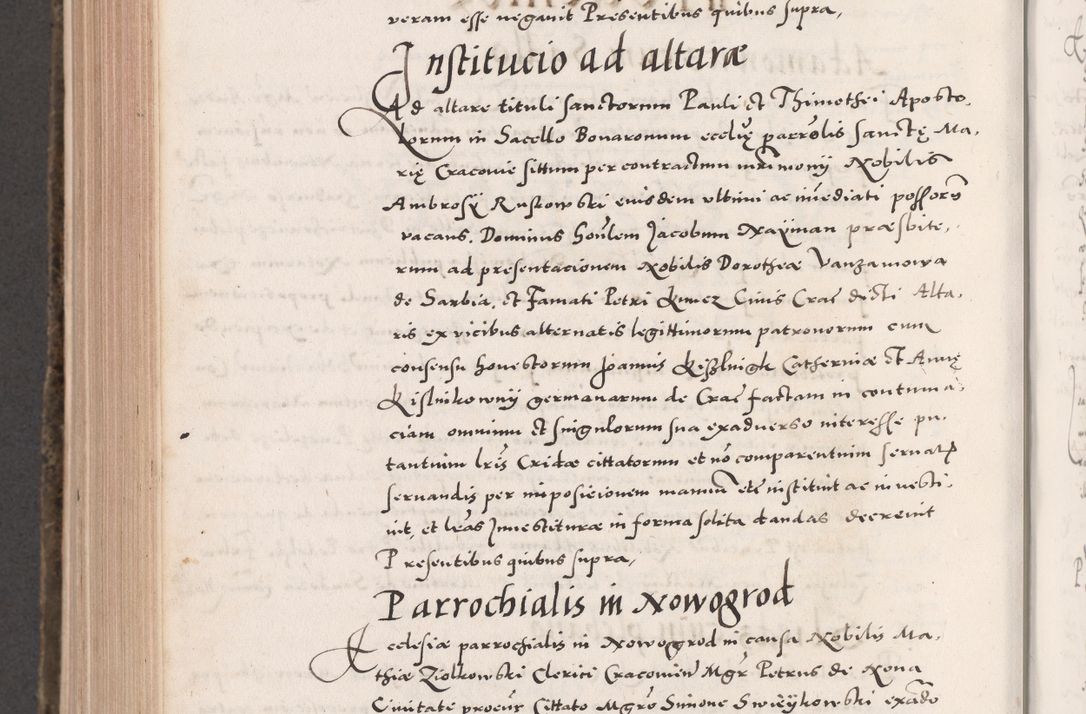 veram esse negauit Presentibus quibus supra,
Institucio ad altaræ
Ad altare tituli sanctorum Pauli et Thimothei Aposto-
lorum in Sacello Bonaronum ecclię parrolis Sanctę Ma-
rię Cracovie situm per contractum mrimonij Nobilis
Ambrosij Ruskowski eiusdem vltimi ac immediati possoris
vacans. Dominus Jacobum Nayman præsbite-
rum ad presentacionem Nobilis Dorotheæ Vanzamowa
de Sarbia, et Famati Petri Kunez Ciuis Crac dicti Alta-
ris ex vicibus alternatis legittimorum patronorum cum
consensu honestorum Joannis Kislnigk Catherinæ et Annę
Kislnikowny germanarum de Crac factam in contuma-
ciam omnium et singulorum sua ex aduerso interesse pu-
tantium lris Cridæ cittatorum et no comparentium seruatis
seruandis per imposicionem manuu etc instituit ac inuesti-
uit, et lras Inuestituræ in forma solita dandas decreuit
Presentibus quibus supra,
Parrochialis in Nowogrod
Ecclesiæ parrochialis in Nowogrod in causa Nobilis Ma-
thiæ Ziolkowski Clerici Cracovien Mgr Petrus de Noua
Ciuitate procur Cittato Mgro Simone Swieykowski exado